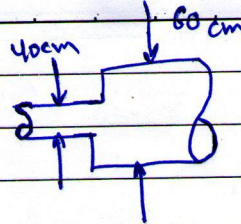 60 cm
40cm